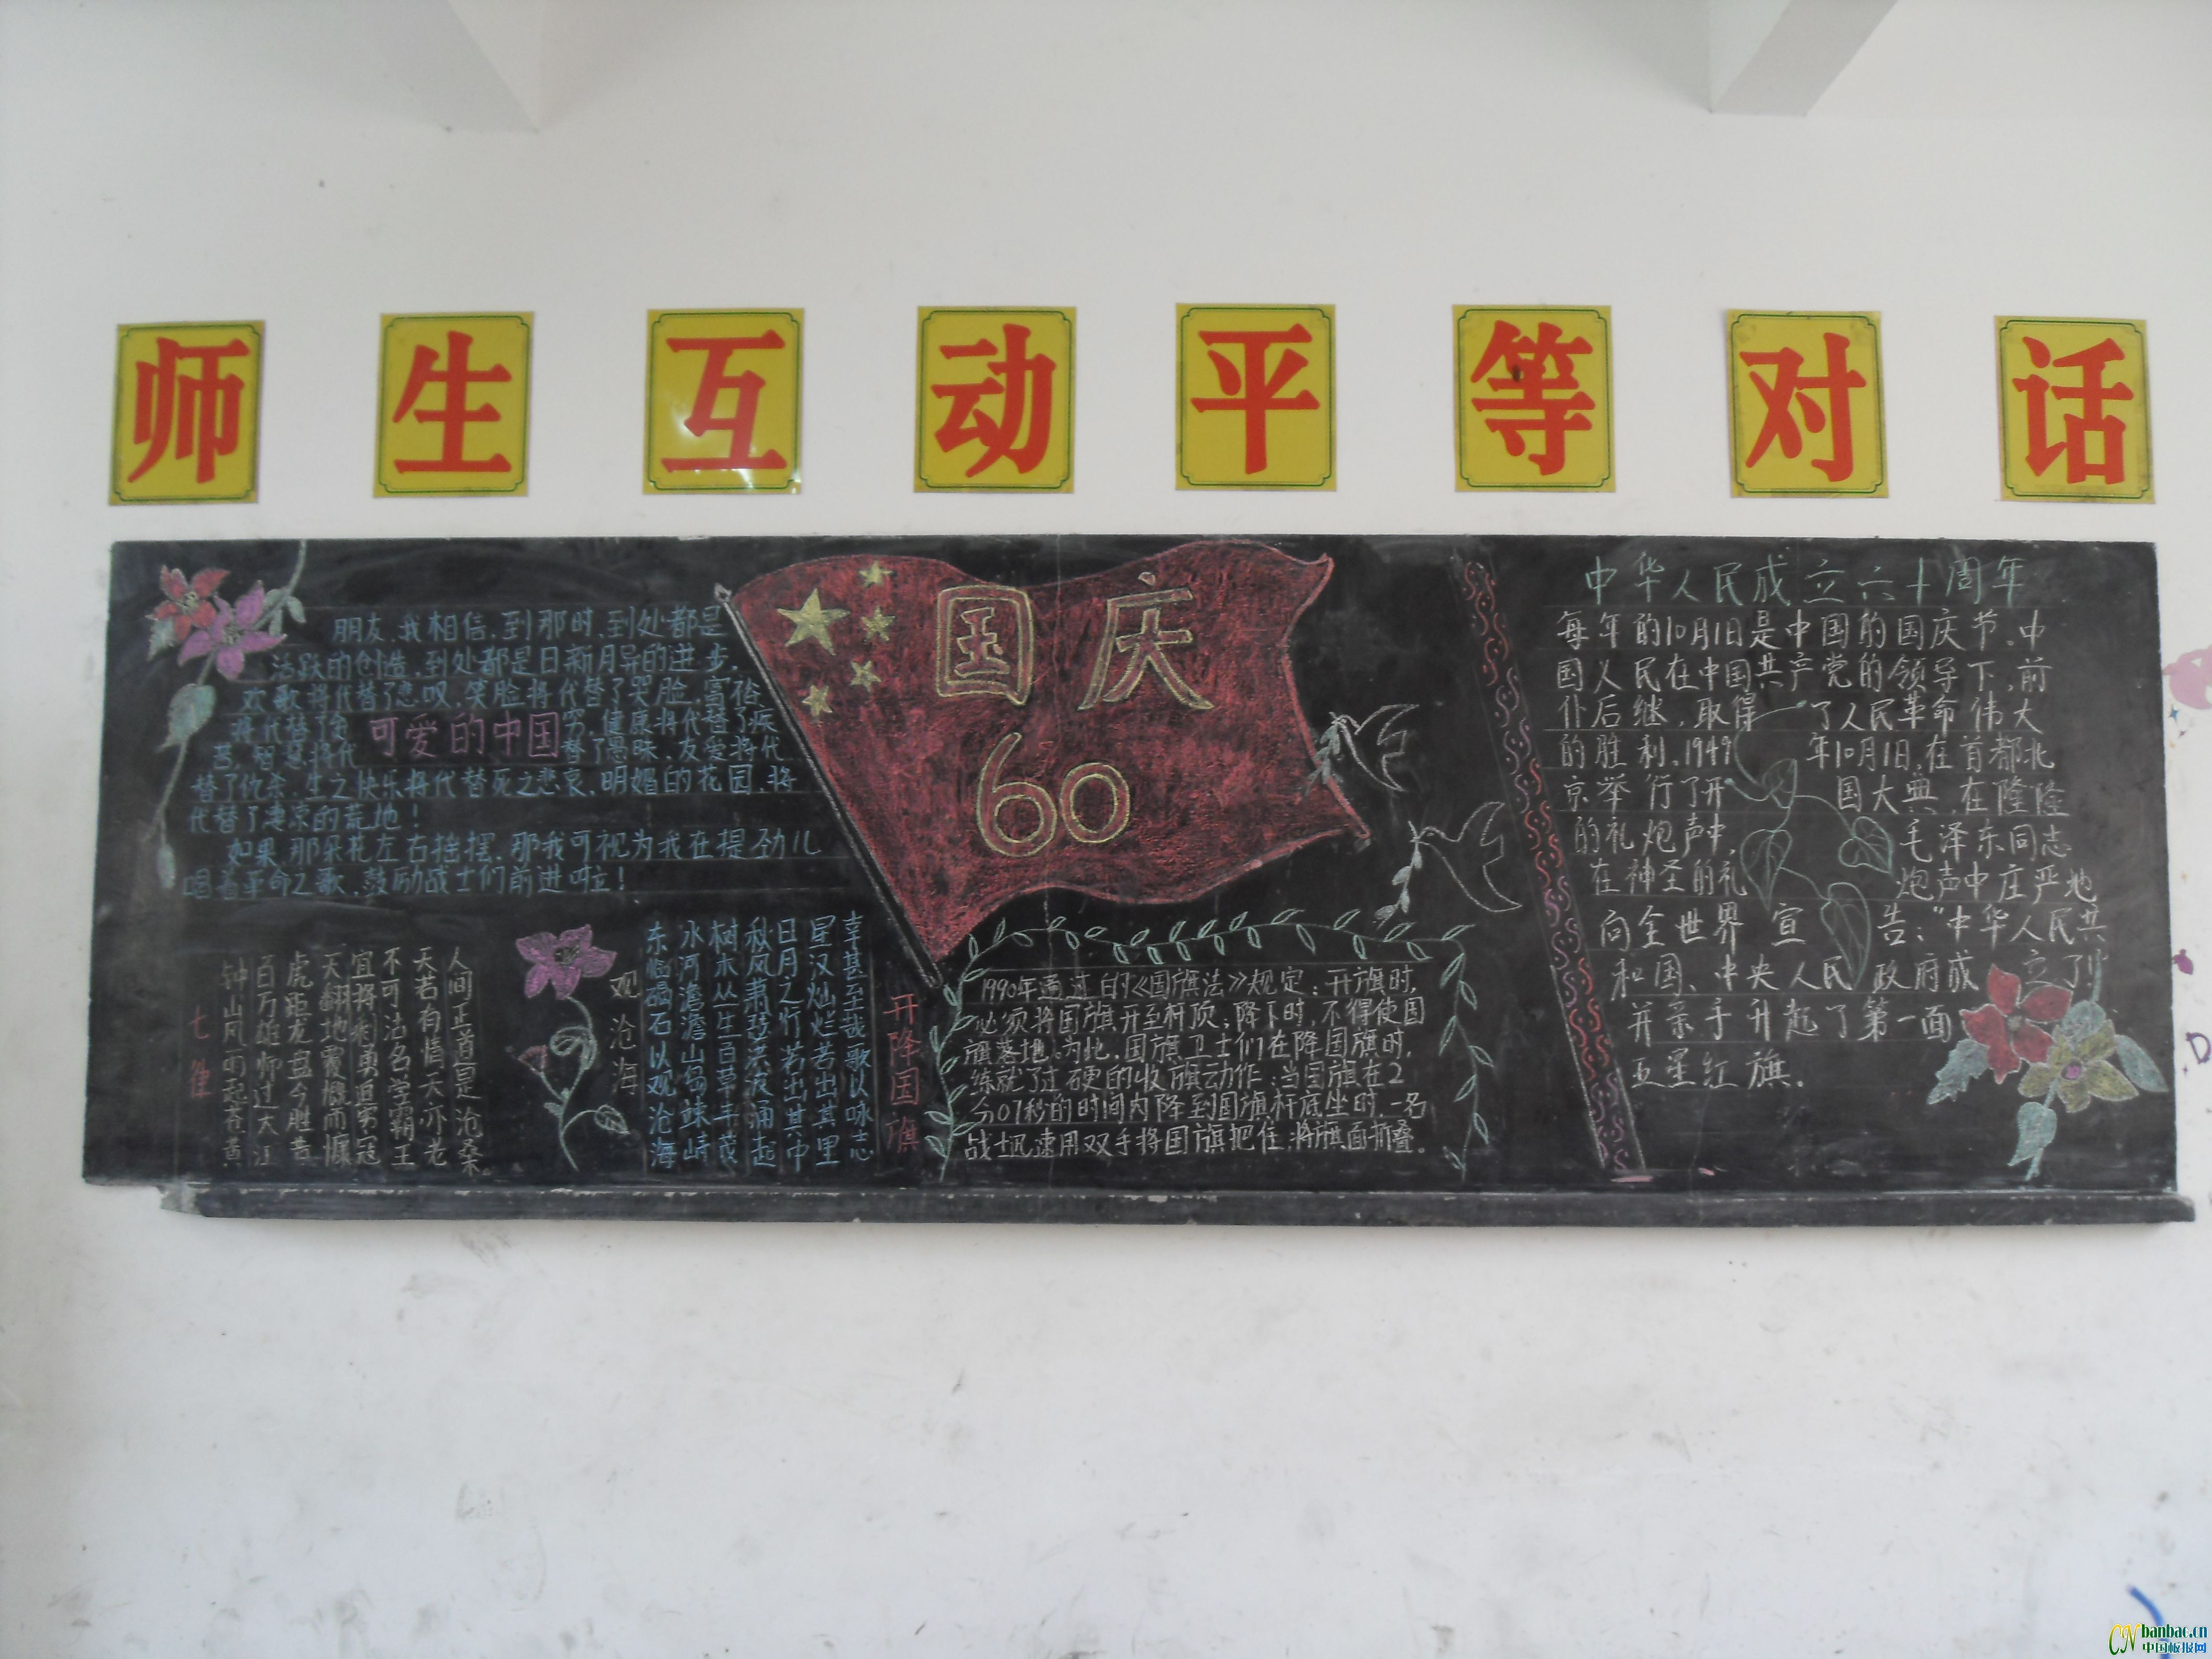 师生互动平等对话
朋友,我相信,到那时,到处都是
活跃的创造,到处都是日新月异的进步,
欢歌将代替了悲叹,笑脸将代替了哭脸,富裕
将代替了贫
可爱的中国
穷,健康将代替了疾
苦,智慧将代
替了愚昧,友爱将代
替了仇杀,生之快乐将代替死之悲哀,明媚的花园,将
代替了凄凉的荒地!
如果,那朵花左右摇摆,那我可视为我在提劲儿
唱着革命之歌,鼓励战士们前进啦!
国庆
60
中华人民成立六十周年
每年的10月1日是中国的国庆节,中
国人民在中国共产党的领导下,前
仆后继,取得了人民革命伟大
的胜利,1949年10月1日,在首都北
京举行了开国大典,在隆隆
的礼炮声中,毛泽东同志
在神圣的礼炮声中庄严地
向全世界宣告:“中华人民共
和国、中央人民政府成立了!
并亲手升起了第一面
五星红旗.
七律
钟山风雨起苍黄
百万雄师过大江
虎距龙盘今胜昔
天翻地覆慨而慷
宜将剩勇追穷寇
不可沽名学霸王
天若有情天亦老
人间正道是沧桑。
观沧海
东临碣石以观沧海
水河澹澹山岛竦峙
树木丛生百草丰茂
秋风萧瑟洪波涌起
日月之行若出其中
星汉灿烂若出其里
幸甚至哉歌以咏志
开降国旗
1990年通过的《国旗法》规定:开旗时,
必须将国旗升至杆顶;降下时,不得使国
旗落地。为此,国旗卫士们在降国旗时,
练就了过硬的收旗动作:当国旗在2
分07秒的时间内降到国旗杆底坐时,一名
战士迅速用双手将国旗把住,将旗面折叠。
D
CN banbao.cn
中国板报网